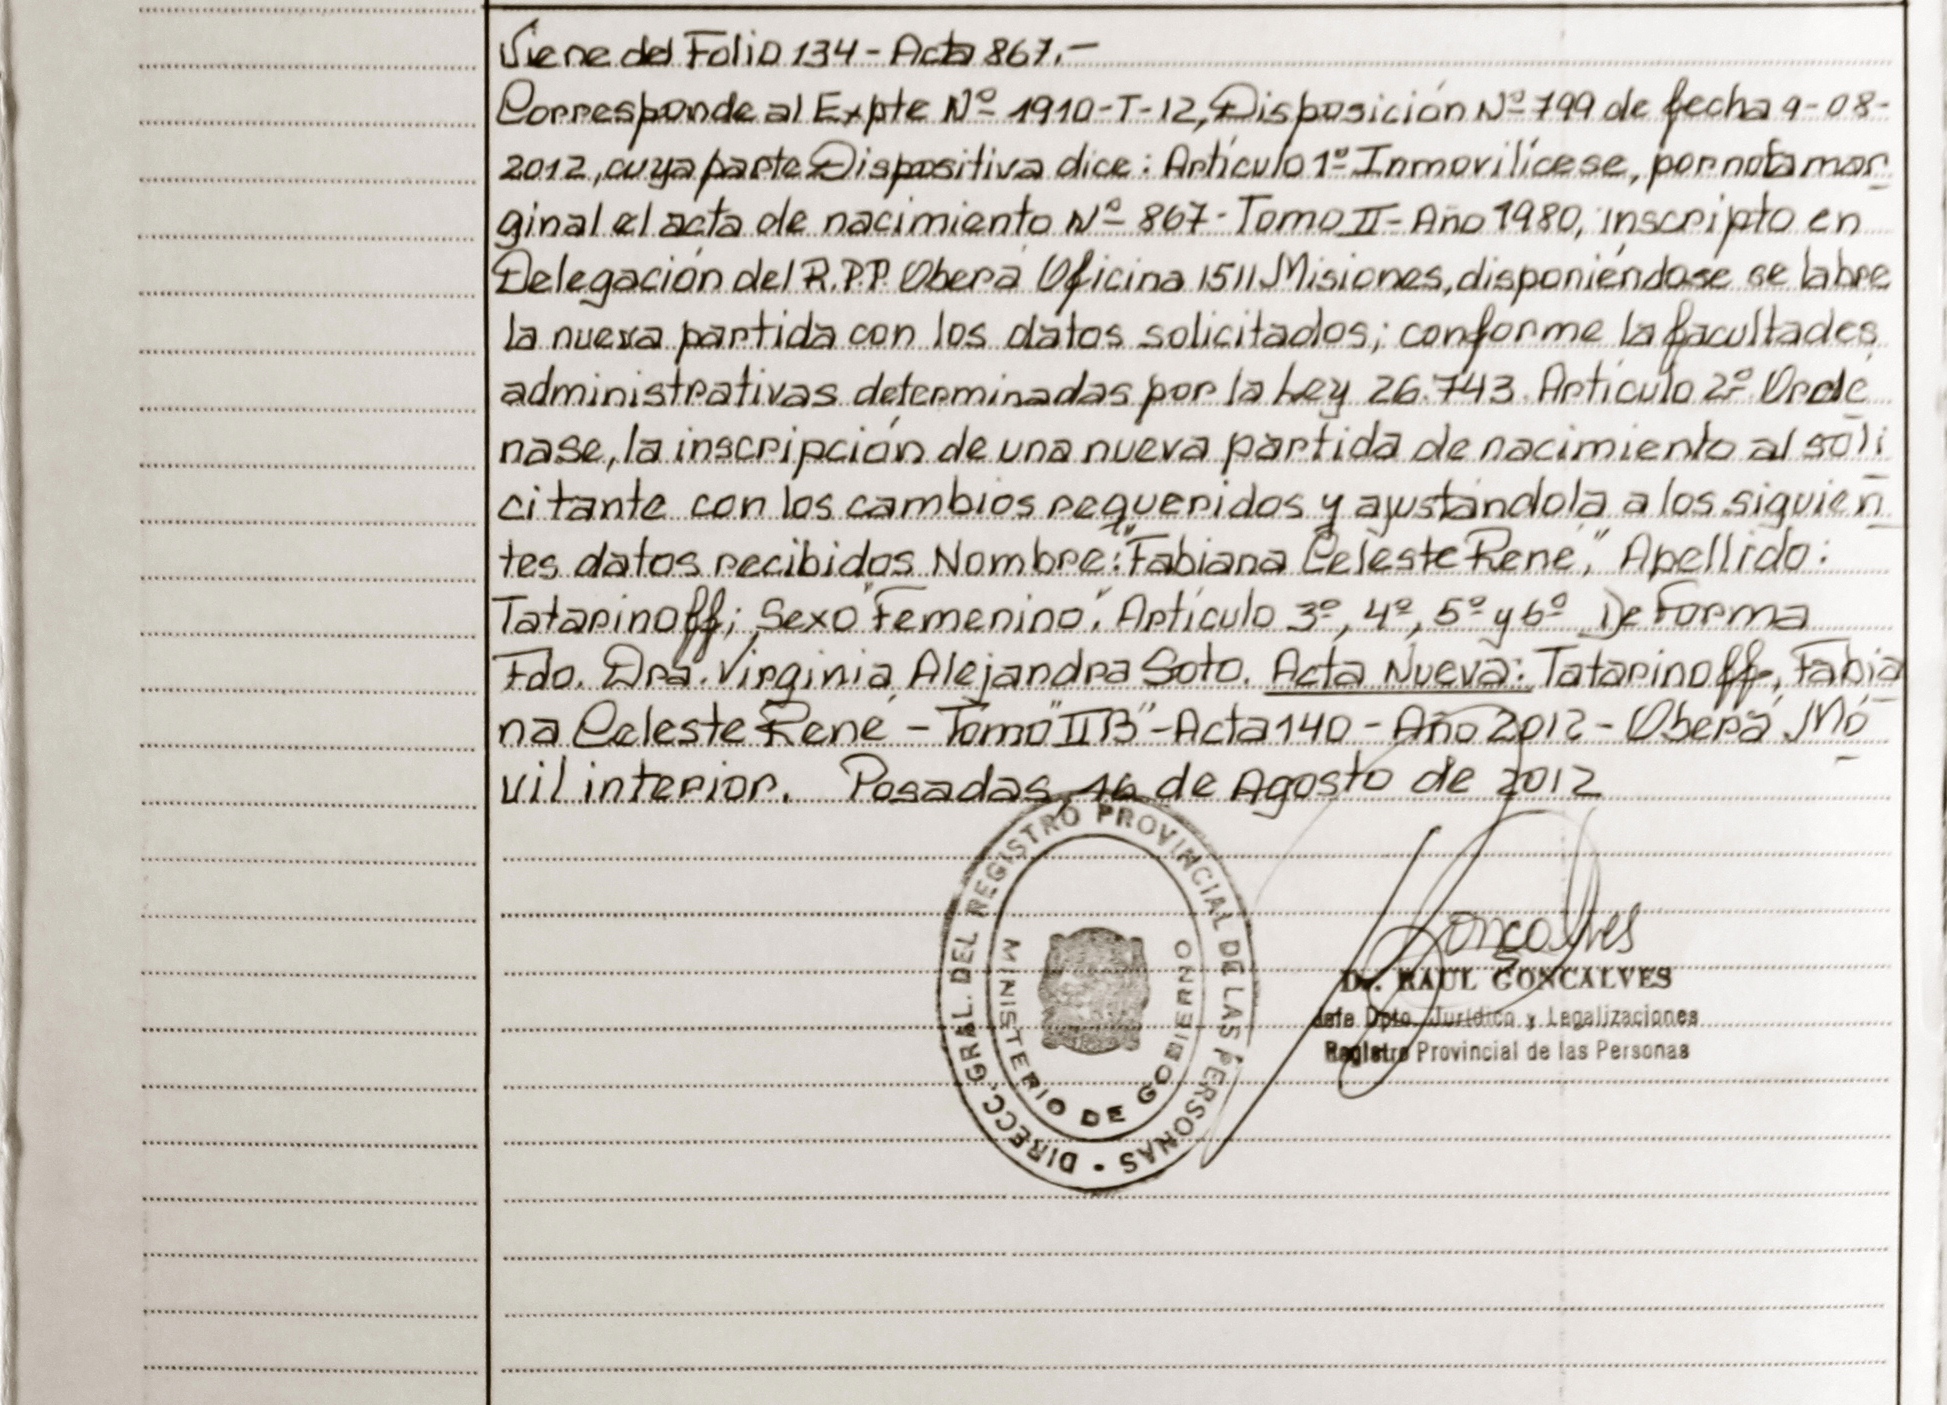 Viene del Folio 134 - Acta 867.-
Corresponde al Expte Nº 1910-T-12, Disposición Nº 799 de fecha 9-08-
2012, cuya parte Dispositiva dice: Artículo 1º Inmovilícese, por nota mar
ginal el acta de nacimiento Nº 867 - Tomo II - Año 1980, inscripto en
Delegación del R.P.P. Oberá Oficina 1511 Misiones, disponiéndose se labre
la nueva partida con los datos solicitados; conforme la facultades
administrativas determinadas por la Ley 26.743. Artículo 2º Orde
nase, la inscripción de una nueva partida de nacimiento al soli
citante con los cambios requeridos y ajustándola a los siguien
tes datos recibidos Nombre: "Fabiana Celeste René," Apellido:
Tatarinoff; Sexo "Femenino". Artículo 3º, 4º, 5º y 6º De Forma
Fdo. Dra. Virginia Alejandra Soto. Acta Nueva: Tatarinoff, Fabia
na Celeste René - Tomo "II B" - Acta 140 - Año 2012 - Oberá Mó
vil interior. Posadas, 16 de Agosto de 2012
DIRECC. GRAL. DEL REGISTRO PROVINCIAL DE LAS PERSONAS
MINISTERIO DE GOBIERNO
Goncalves
Dr. RAUL GONCALVES
Jefe Dpto. Jurídico y Legalizaciones
Registro Provincial de las Personas